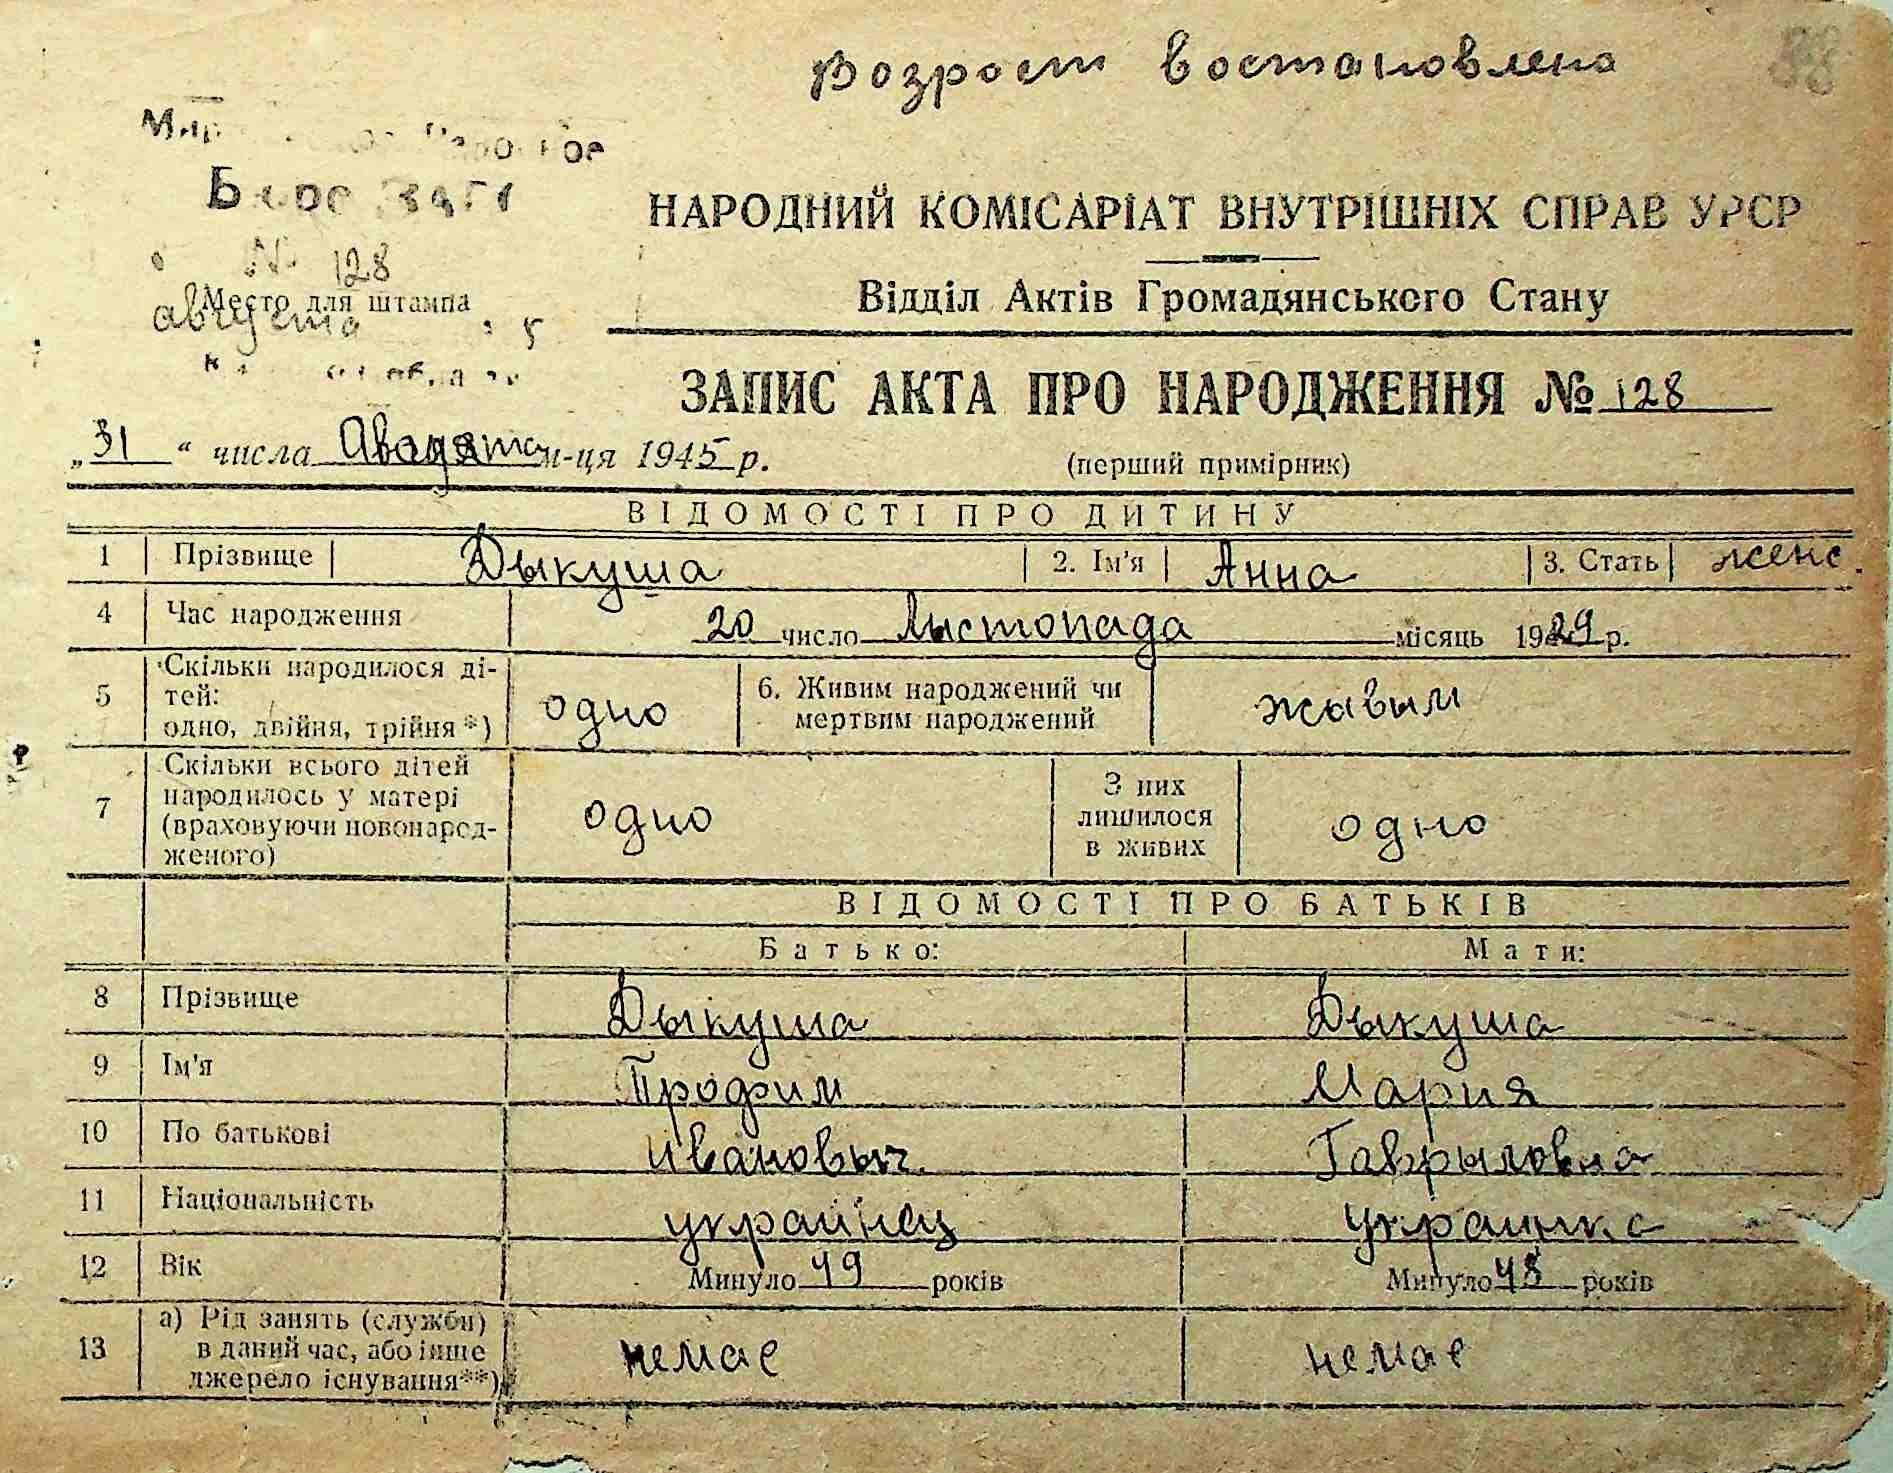 Возраст востановлено
88
№ 128
августа 5
Место для штампа
НАРОДНИЙ КОМІСАРІАТ ВНУТРІШНІХ СПРАВ УРСР
Відділ Актів Громадянського Стану
ЗАПИС АКТА ПРО НАРОДЖЕННЯ № 128
„31“ числа м-ця 1945 р. (перший примірник)
ВІДОМОСТІ ПРО ДИТИНУ
1 Прізвище Дыкуша 2. Ім'я Анна 3. Стать женс.
4 Час народження 20 число Лыстопада місяць 1929 р.
5 Скільки народилося ді-
тей:
одно, двійня, трійня *) одно
6. Живим народжений чи
мертвим народжений жывым
7 Скільки всього дітей
народилось у матері
(враховуючи новонарод-
женого) одно
З них
лишилося
в живих одно
ВІДОМОСТІ ПРО БАТЬКІВ
Батько: Мати:
8 Прізвище Дыкуша Дыкуша
9 Ім'я Трофим Мария
10 По батькові Ивановыч. Гаврыловна
11 Національність украинец украинка
12 Вік Минуло 49 років Минуло 48 років
13 а) Рід занять (служби)
в даний час, або інще
джерело існування**) немае немае